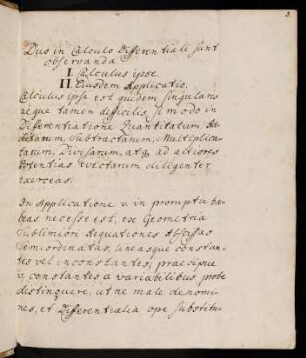 3.
Duo in Calculo Differentiali sunt
observanda.
I. Calculus ipse
II. Ejusdem Applicatio.
Calculus ipse est quidem singularis
neque tamen difficilis, si modo in
Differentiatione Quantitatum,
ctarum, Subtractarum, Multiplica-
tarum, Divisarum, atq ad altiores
Potentias evectarum diligenter
exerceas.
In Applicatione v. in promptu ha-
beas necesse est, ex Geometria
Sublimiori Aequationes Abscissas
Semiordinatas, lineasque constan-
tes vel inconstantes; praecipue
v. constantes a variabilibus probe
distinguere, ut ne male denomi-
nes, et Differentialia ope substitu-